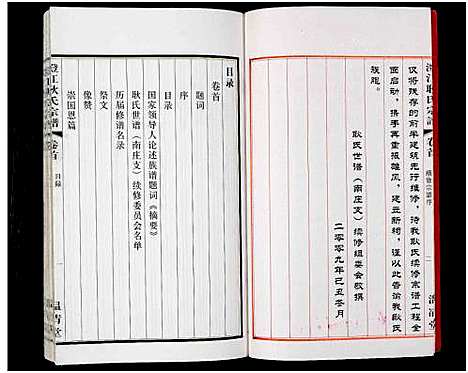 澄江耿氏宗谱
卷首
续修宗谱序
二
清堂
仅将残存的前半建筑先行维修，待我耿氏续修宗谱工程全
面启动，俟季再重振雄风，建立新祠，谨以此告谕我耿氏
族胞。
耿氏世谱（南庄支）续修组委会敬撰
二〇〇九年己丑冬月
目录
卷首
题词
序
目录
国家领导人论述族谱题词《摘要》
耿氏世谱（南庄支）续修委员会名单
历届修谱名录
祭文
像赞
崇国恩篇
澄江耿氏宗谱
卷首
目录
一